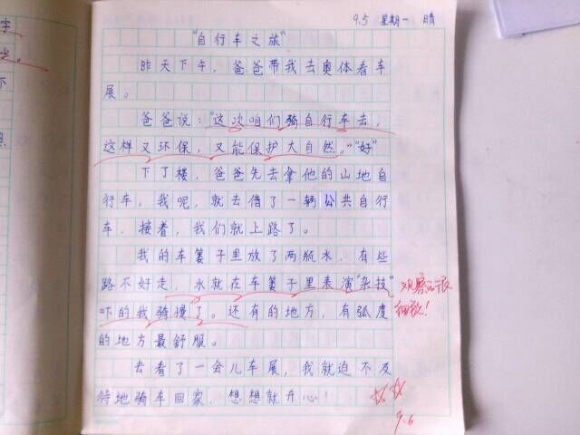 9.5 星期一 晴
"自行车之旅"
昨天下午，爸爸带我去奥体看车
展。
爸爸说："这次咱们骑自行车去，
这样又环保，又能保护大自然。""好"
下了楼，爸爸先去拿他的山地自
行车，我呢，就去借了一辆公共自行
车，接着，我们就上路了。
我的车篓子里放了两瓶水，有些
路不好走，水就在车篓子里表演"杂技"
吓的我骑慢了。还有的地方，有弧度
的地方最舒服。
观察的很
细致！
去看了一会儿车展，我就迫不及
待地骑车回家，想想就开心！
9.6
字
下